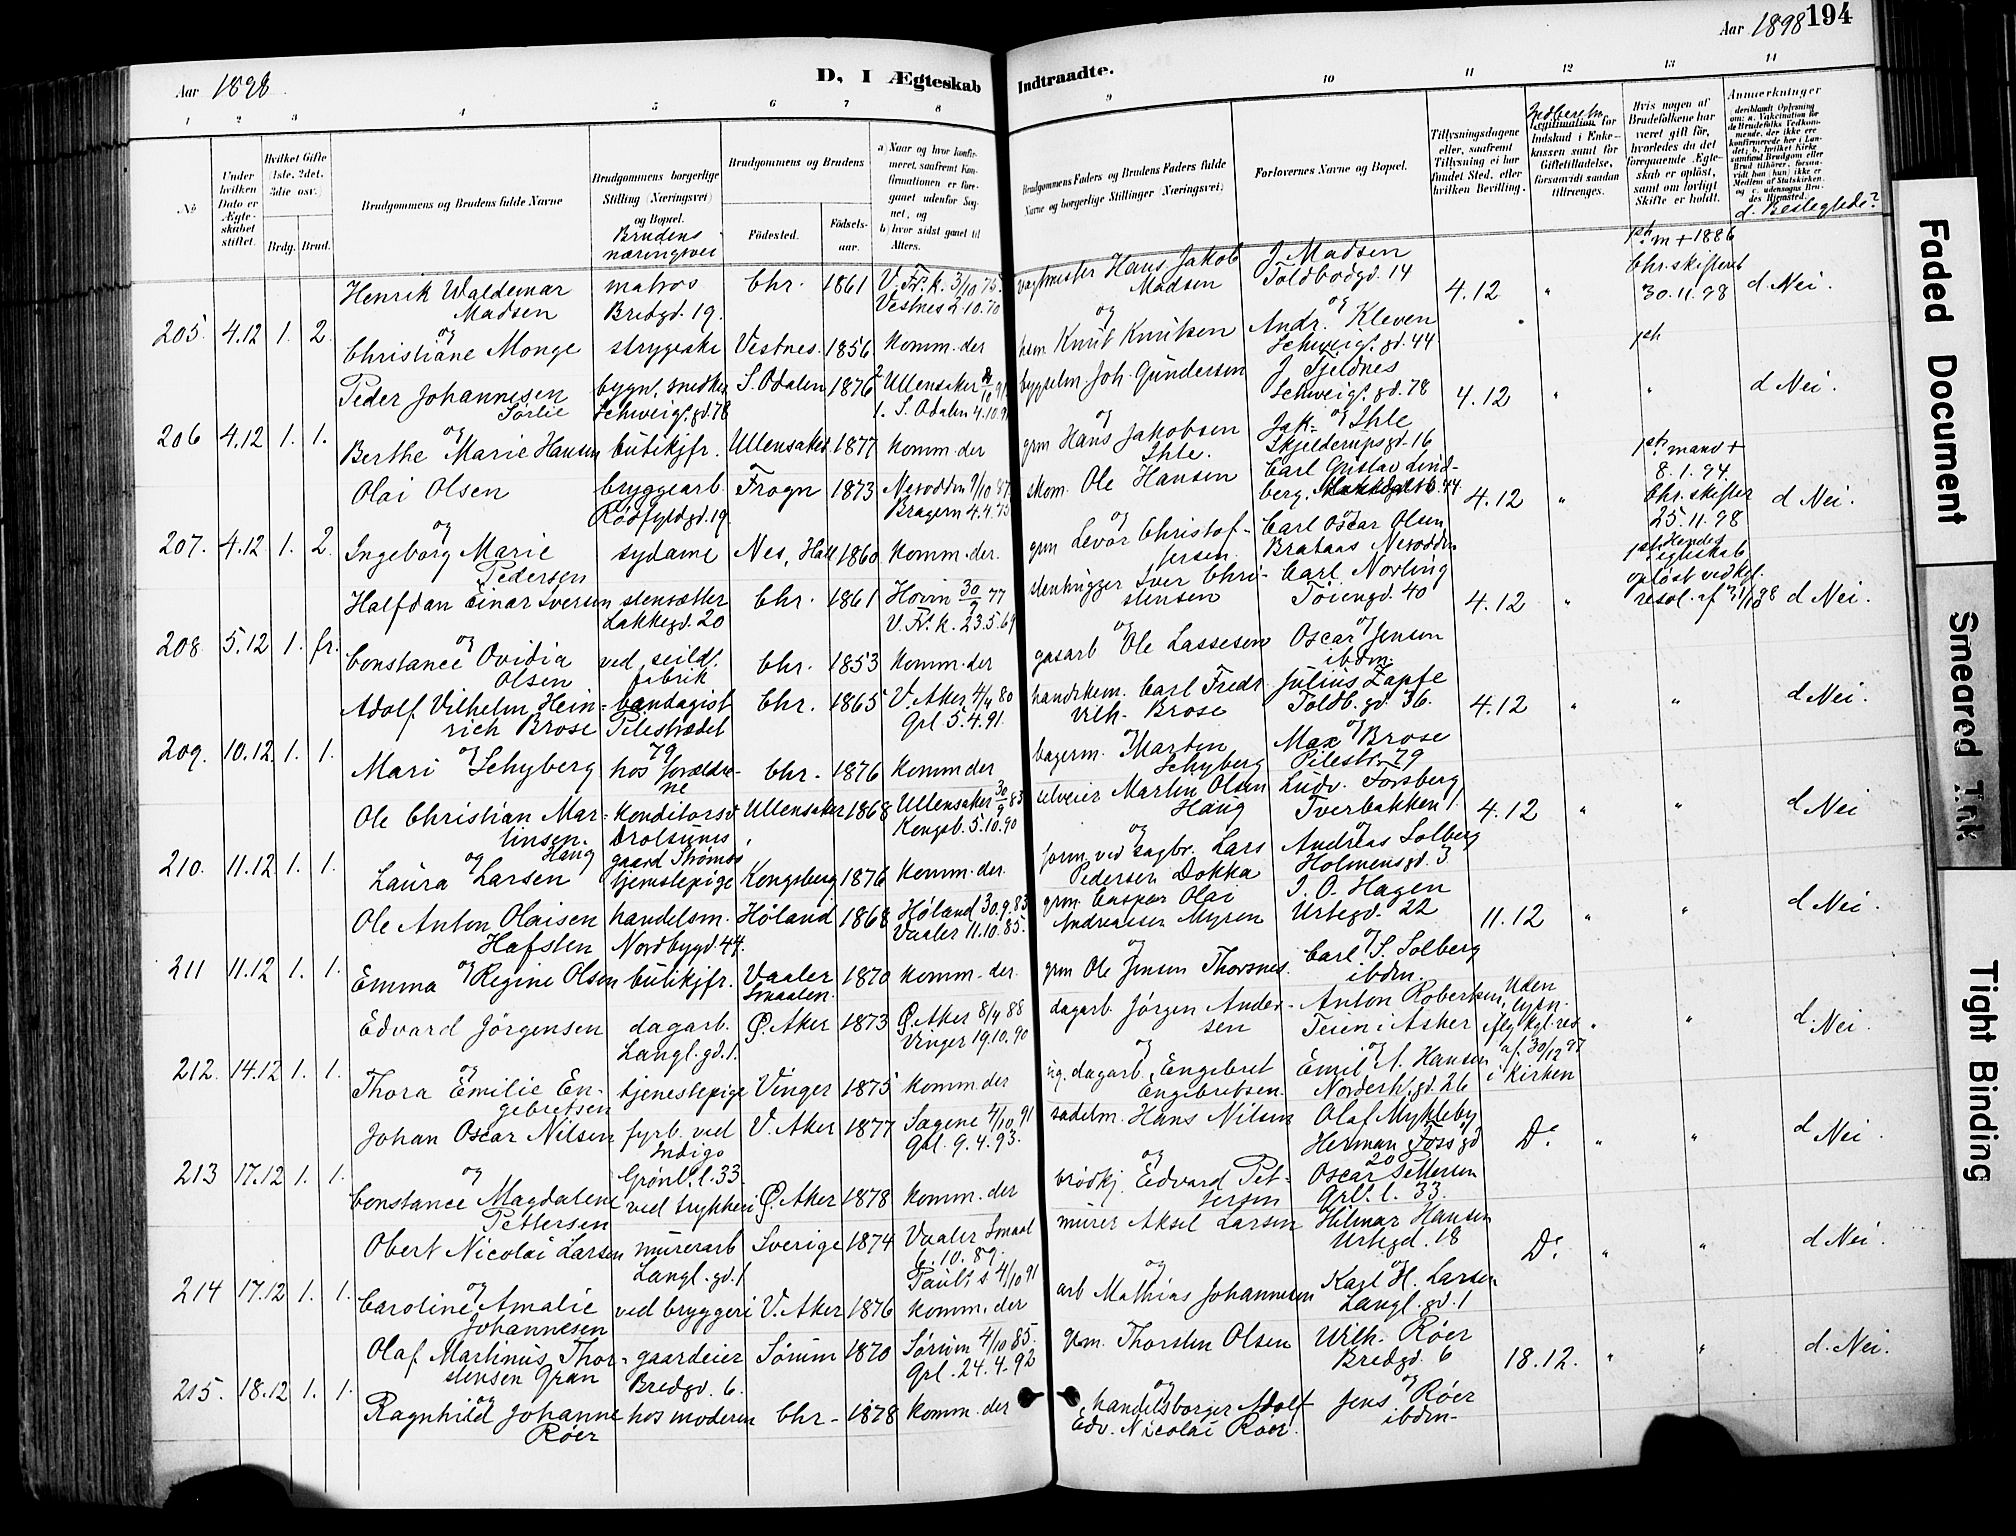 Aar 1898.
D, I Ægteskab Indtraadte.
Aar 1898 194
1 2 3 4 5 6 7 8 9 10 11 12 13 14
No
Under hvilken Dato er Ægteskabet stiftet.
Hvilket Gifte (1ste, 2det, 3die osv.).
Brdg. Brud.
Brudgommens og Brudens fulde Navne
Brudgommens borgerlige Stilling (Næringsvei) og Bopæl.
Brudens næringsvei
Brudgommens og Brudens
Födested. Födselsaar.
a) Naar og hvor konfirmeret, saafremt Konfirmationen er foregaaet udenfor Sognet, og
b) hvor sidst gaaet til Alters.
Brudgommens Faders og Brudens Faders fulde Navne og borgerlige Stillinger (Næringsvei)
Forlovernes Navne og Bopæl.
Tillysningsdagene eller, saafremt Tillysning ei har fundet Sted, efter hvilken Bevilling.
Legitimation for Indskud i Enkekassen samt for Giftetilladelse, forsaavidt saadan tiltrænges.
Hvis nogen af Brudefolkene har været gift før, hvorledes da det foregaaende Ægteskab er opløst, samt om lovligt Skifte er holdt.
Anmærkninger
d. Beslegtede?
205. 4.12 1. 2.
Henrik Waldemar Madsen
matros Bredgd. 19.
Chr. 1861
V. Fr. k. 3/10 75.
Vestnes 2.10.70
vagtmester Hans Jakob Madsen
J. Madsen Toldbodgd. 14
4.12 "
m + 1886 Chr. skifteret 30.11.98
d Nei.
og
Christiane Monge
strygeske Vestnes. 1856 Komm. der
og
hsm. Knut Knutsen
og
Andr. Kleven Schweigs. gd. 44
206 4.12 1. 1.
Peder Johannesen Sørlie
bygn. snedker Schweigs. gd. 78
S. Odalen 1876
2. Ullensaker
1. S. Odalen 4.10.91
bygselm Joh. Gundersen
J. Fjeldnes Schweigs. gd. 78
4.12 " " d Nei.
og
Berthe Marie Hansen
butikjfr. Ullensaker 1877 Komm. der
og
grm Hans Jakobsen Ihle.
og
Jak. Ihle Skjelderupsgd. 16
207. 4.12 1. 2.
Olai Olsen
bryggearb. Rødfyldgd. 19.
Frogn 1873
Nesodden 9/10 87
Bragern 4.4.75
skom. Ole Hansen
Carl Gustav Lindberg.
4.12 "
mand + 8.1.94. Chr. skifter 25.11.98
d Nei.
og
Ingeborg Marie Pedersen
sydame Nes, Hall 1860 Komm. der.
og
grm Levor Christoffersen
og
Carl Oscar Olsen Brataas Nesodden
208. 5.12 1. fr.
Halfdan Einar Iversen
stensætter Lakkegd. 20
Chr. 1861
Hovin 30/9 77
V. Fr. k. 23.5.69
stenhugger Iver Christensen
Carl Norling Töiengd. 40
4.12 "
Hendes egteskab opløst ved kgl. resol. af
d Nei.
og
Constance Ovidia Olsen
ved seild. fabrik Chr. 1853 Komm. der
og
gasarb Ole Lassesen
og
Oscar Jensen ibdm.
209. 10.12. 1. 1.
Adolf Vilhelm Heinrich Brose
bandagist Pilestrædet 79
Chr. 1865
V. Aker 4/4 80
Grl. 5.4.91.
handskem. Carl Fredr. Vilh. Brose
Julius Zapfe Toldb. gd. 36.
4.12 " " d Nei.
og
Mari Schyberg
hos forældrene Chr. 1876 Komm der
og
bagerm. Martin Schyberg
og
Max Brose Pilestr. 79
210. 11.12. 1. 1.
Ole Christian Martinsen Haug
Konditorsv
Ullensaker 1868
Ullensaker 30/9 83
Kongsb. 5.10.90
selveier Martin Olsen Haug
Ludv. Forsberg Tverbakken 1.
4.12 " " d Nei
og
Laura Larsen
tjenestepige Kongsberg 1876 Komm. der
og
form. ved sagbr. Lars Pedersen Dokka
og
Andreas Solberg Holmensgd. 3
211 11.12 1. 1.
Ole Anton Olaisen Hafsten
handelsm. Nordbygd. 44.
Høland 1868
Høland 30.9.83
Vaaler 11.10.85.
grm. Caspar Olai Andreassen Myren
I. O. Hagen Urtegd. 22
11.12 " " d Nei.
og
Emma Regine Olsen
butikjfr. Vaaler Smaalen. 1870 Komm. der
og
grm Ole Jensen Thorsnes.
og
Carl S. Solberg ibdm.
212. 14.12 1. 1.
Edvard Jörgensen
dagarb. Langl. gd. 1.
Ø. Aker 1873
Ø. Aker 8/4 88
Vinger 19.10.90
dagarb. Jörgen Andersen
Anton Robertsen, Teien i Asker
Uden lysn. iflg kgl. res af 30/12 97 i Kirken
" " d. Nei.
og
Thora Emilie Engebretsen
tjenestepige Vinger 1875 Komm. der
og
dagarb. Engebret Engebretsen
og
Emil A. Hansen Norderh. gd. 26
213 17.12 1. 1.
Johan Oscar Nilsen
fyrb. ved Indigo Grönl. l. 33.
V. Aker 1877
Sagene 4/10 91
Grl. 9.4.93.
sadelm. Hans Nilsen
Olaf Mykleby Herman Foss gd 20
Do " " d Nei.
og
Constance Magdalene Pettersen
ved trykkeri Ø. Aker 1878 Komm. der
og
brödkj. Edvard Pettersen
Oscar Pettersen Grl. l. 33.
214 17.12 1. 1.
Obert Nicolai Larsen
murerarb Langl. gd. 1
Sverige 1874
Vaaler Smaal 6.10.89.
murer Aksel Larsen
Hilmar Hansen Urtegd. 18
Do " " d Nei.
og
Caroline Amalie Johannesen
ved bryggeri V. Aker 1876
Pauls 4/10 91
Komm. der
og
arb Mathias Johannesen
og
Karl H. Larsen Langl. gd. 1
215. 18.12 1. 1.
Olaf Martinus Thorstensen Gran
gaardeier Bredgd. 6.
Sörum 1870
Sørum 4/10 85.
Grl. 24.4.92
grm. Thorsten Olsen
Wilh. Røer Bredgd. 6
18.12. " " d. Nei.
og
Ragnhild Johanne Røer
hos moderen Chr. 1878 Komm. der
og
handelsborger Adolf Edv. Nicolai Røer.
og
Jens Røer ibdm.
Faded Document
Smeared Ink
Tight Binding